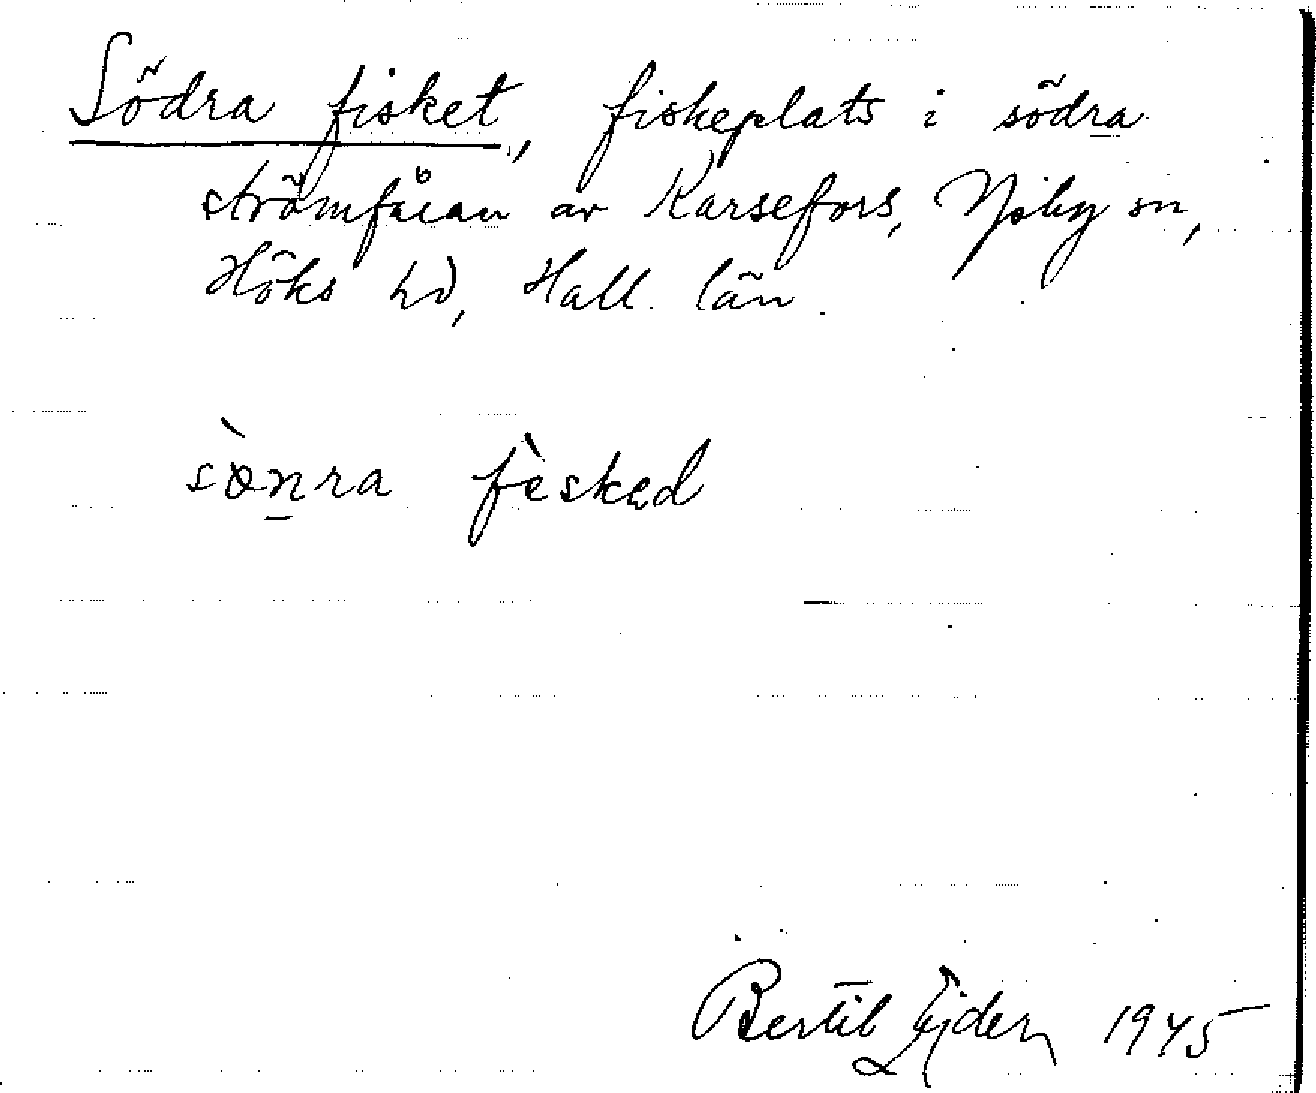 Södra fisket, fiskeplats i södra
strömfåran av Karsefors, Ysby sn,
Höks hd, Hall. län.
sö̀nra fèskəd
Bertil Ejder 1945